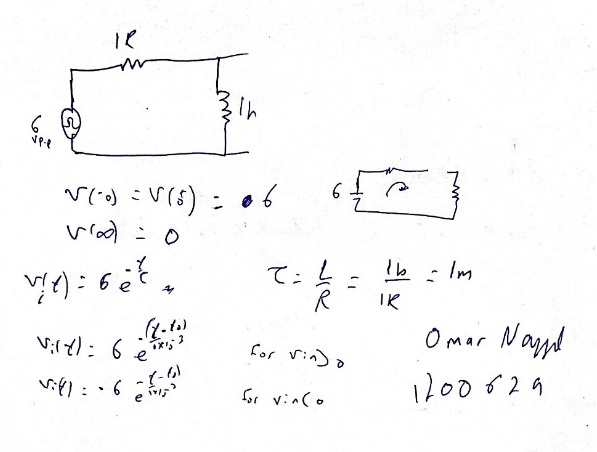 1K
6 vp-p
1h
v(-0) = v(ō) = 6
6
v(∞) = 0
v_i(t) = 6 e^{-t/τ}
τ = L/R = 1h/1K = 1m
v_i(t) = 6 e^{-(t-t0)/1×10^-3} for vin>0
v_i(t) = -6 e^{-(t-t0)/1×10^-3} for vin<0
Omar
1200629